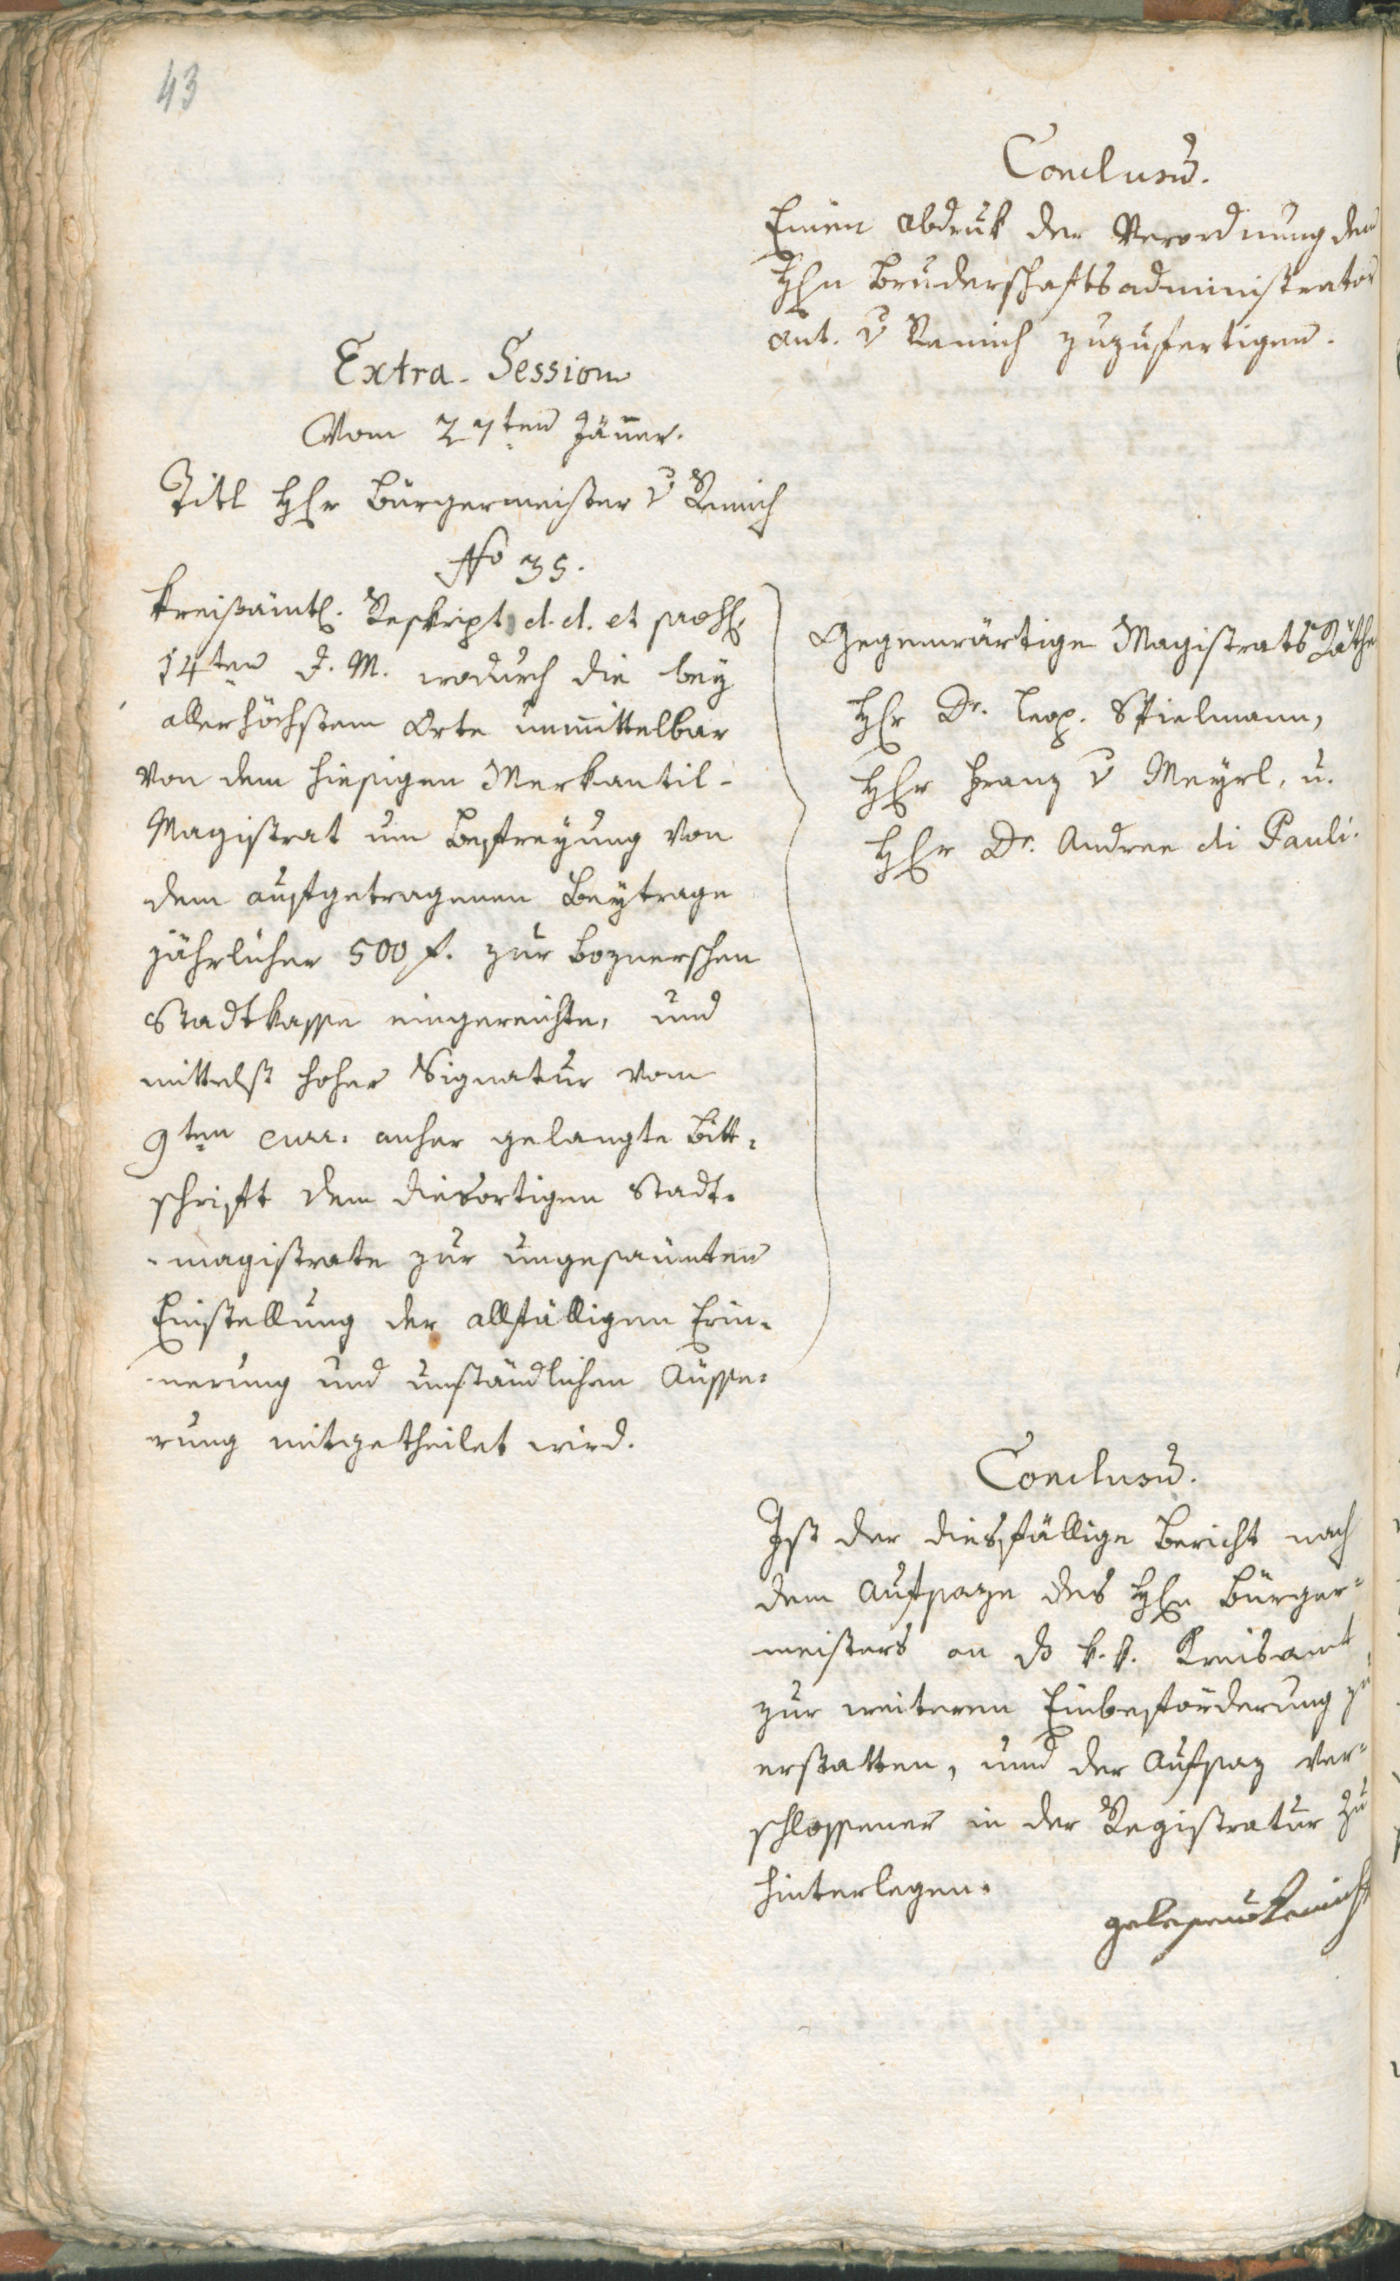 43
Conclusū.
Einen Abdruk der Verordnung dem
Hħn Bruderschaftsadministrator
Ant. v Remich zuzufertigen.
Extra-Session
Vom 27ten Jäner.
Titl Hħr Bürgermeister v Remich
No 35.
Kreisämtl. Reskript d. d. et
14ten d. M. wodurch die bey
allerhöchstem Orte unmittelbar
von dem hiesigen Merkantil-
Magistrat um Befreyung von
dem aufgetragenen Beytrage
jährlicher 500 f. zur boznerschen
Stadtkasse eingereichte, und
mittelst hoher Signatur vom
9ten curr. anher gelangte Bitt-
schrift dem diesortigen Stadt-
-magistrate zur ungesäumten
Einstellung der allfälligen Erin-
-nerung und umständlichen Äusse-
rung mitgetheilet wird.
Gegenwärtige Magistrats Räthe
Hħr Dr. Leop. Stielmann,
Hħr Franz v Meyrl, u.
Hħr Dr. Andree di Pauli.
Conclusū.
Ist der diesfällige Bericht nach
dem Aufsaze des Hħn Bürger-
meisters an ds k. k. Kreisamt
zur weiteren Einbeförderung zu
erstatten, und der Aufsaz ver-
schlossener in der Registratur zu
hinterlegen.
gelesen v Remich